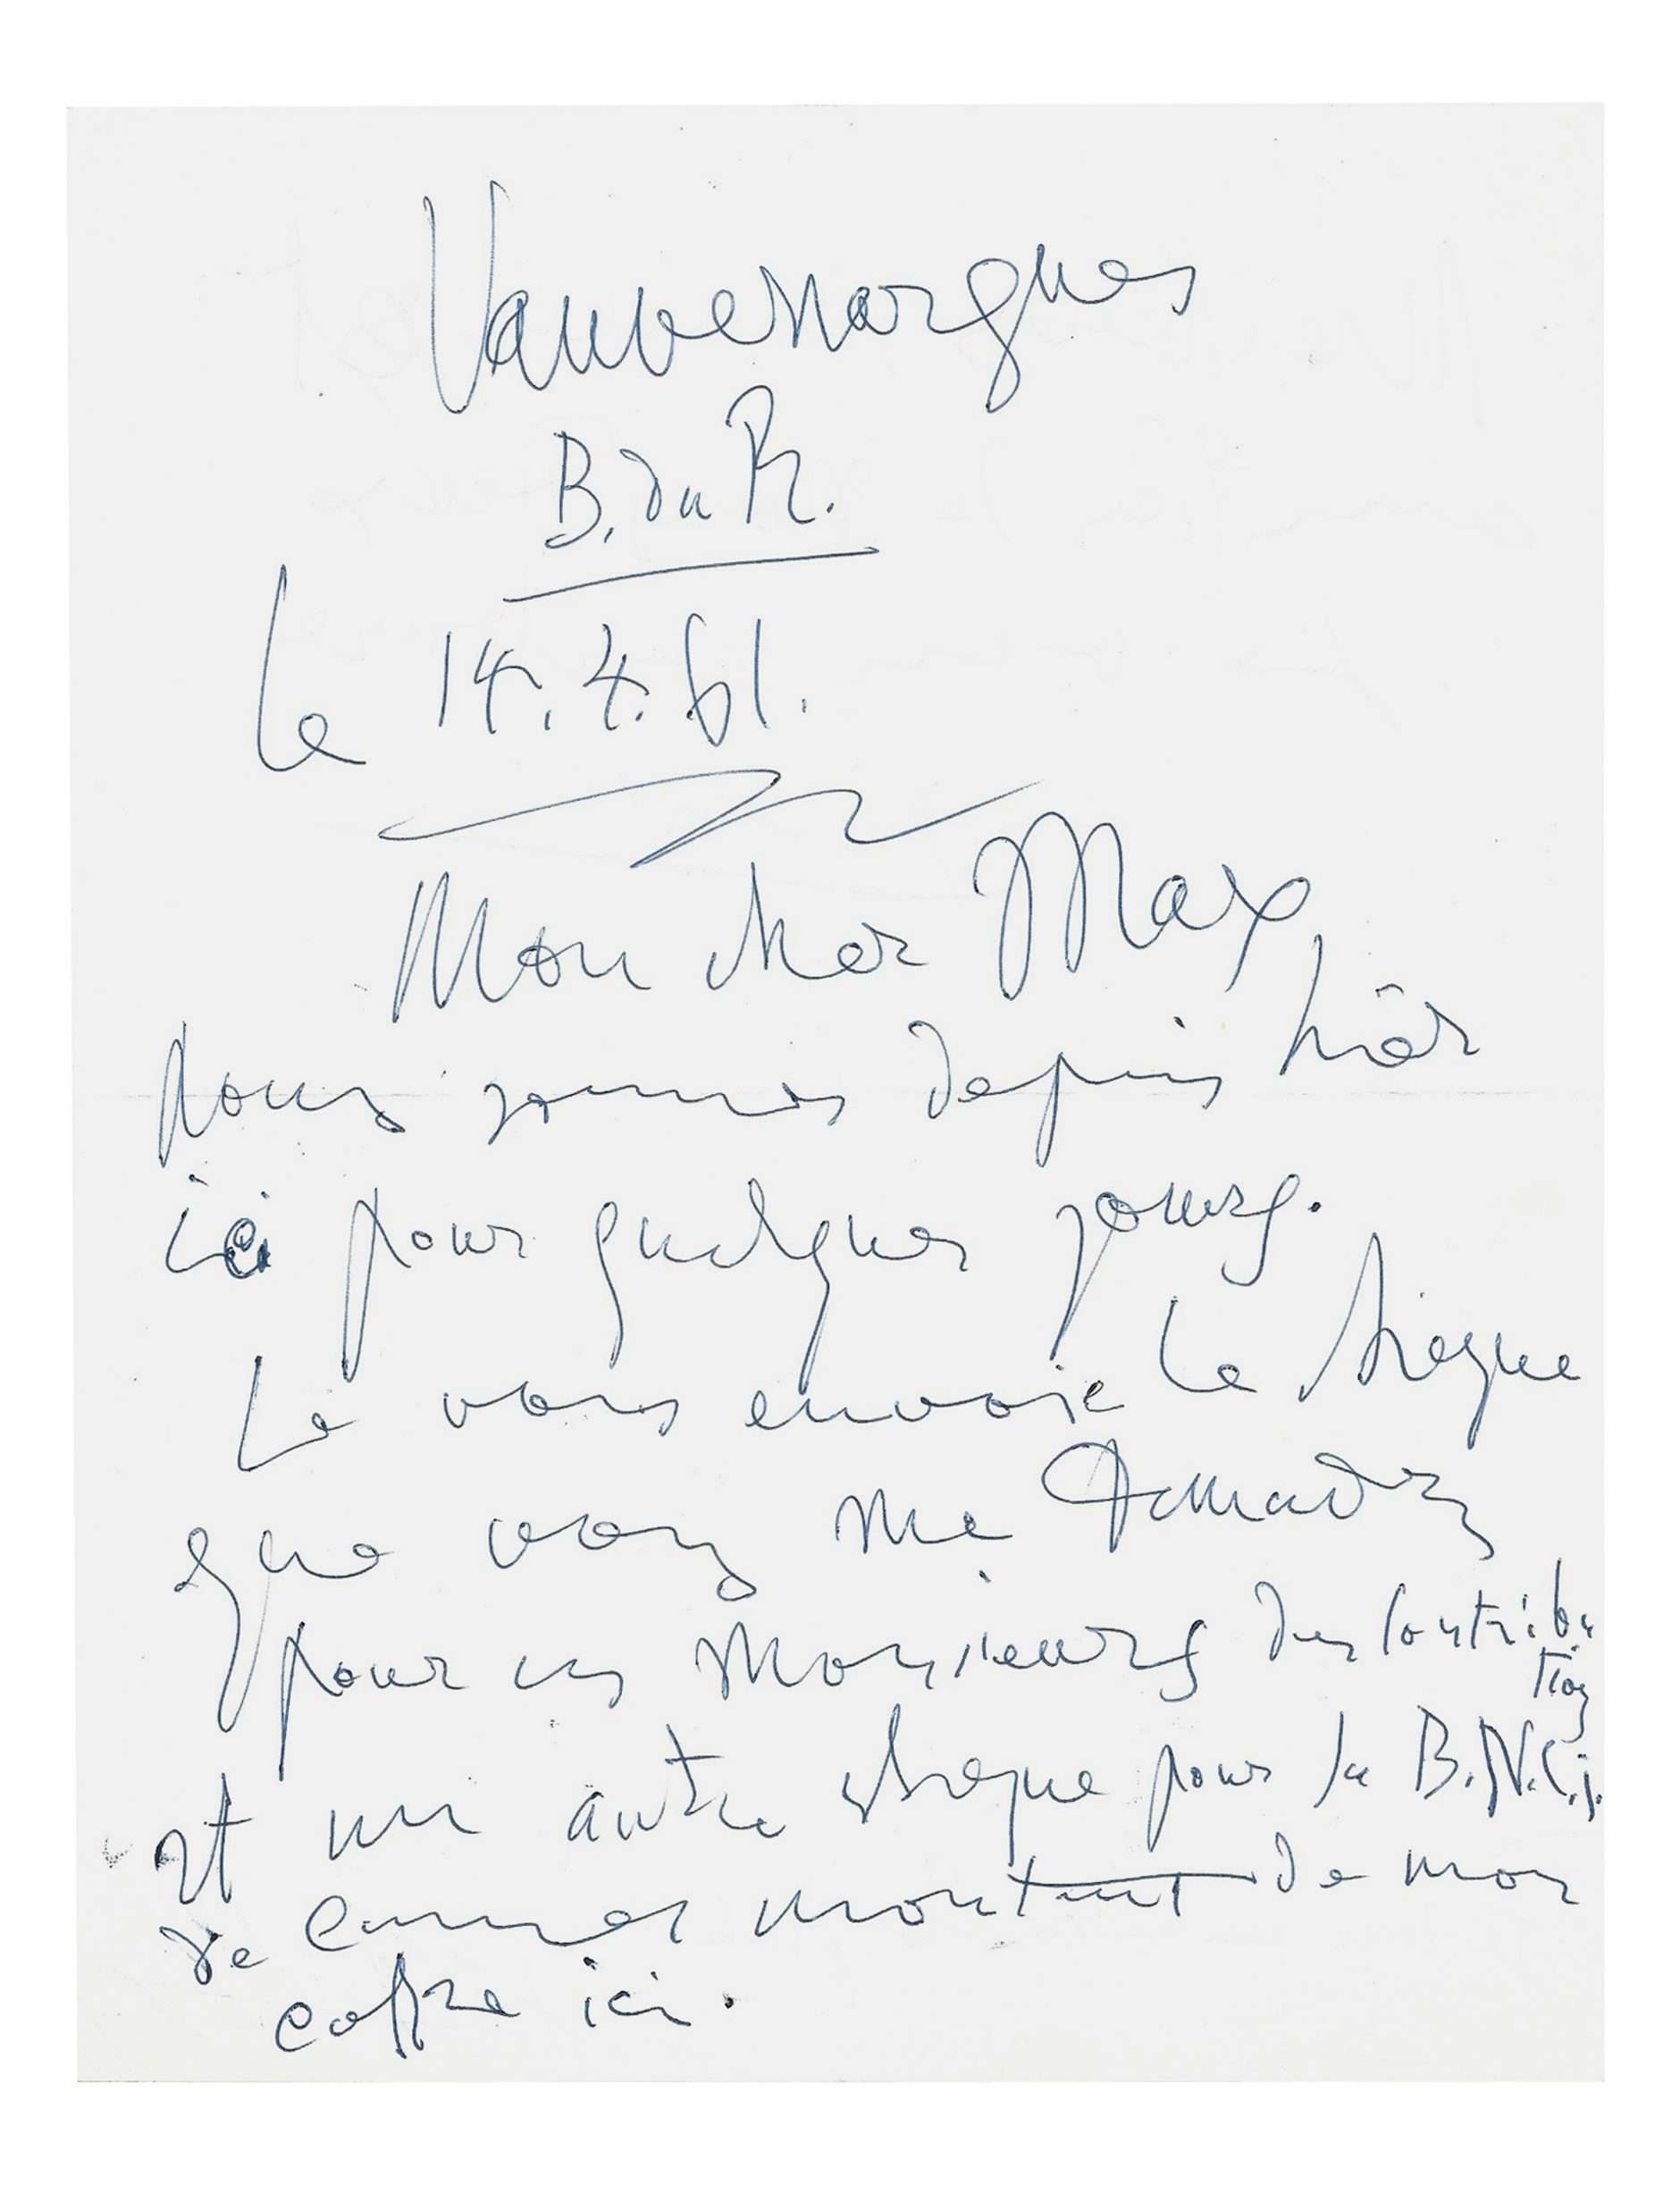 Vauvenargues
B. du R.
le 14.4.61.
Mon cher Max
Nous sommes depuis hier
ici pour quelques jours.
Je vous envoie le chèque
que vous me demandez
pour ces Monsieurs des Contribu
tions
et un autre cheque pour la B.N.C.i.
de Cannes montant de mon
coffre ici.